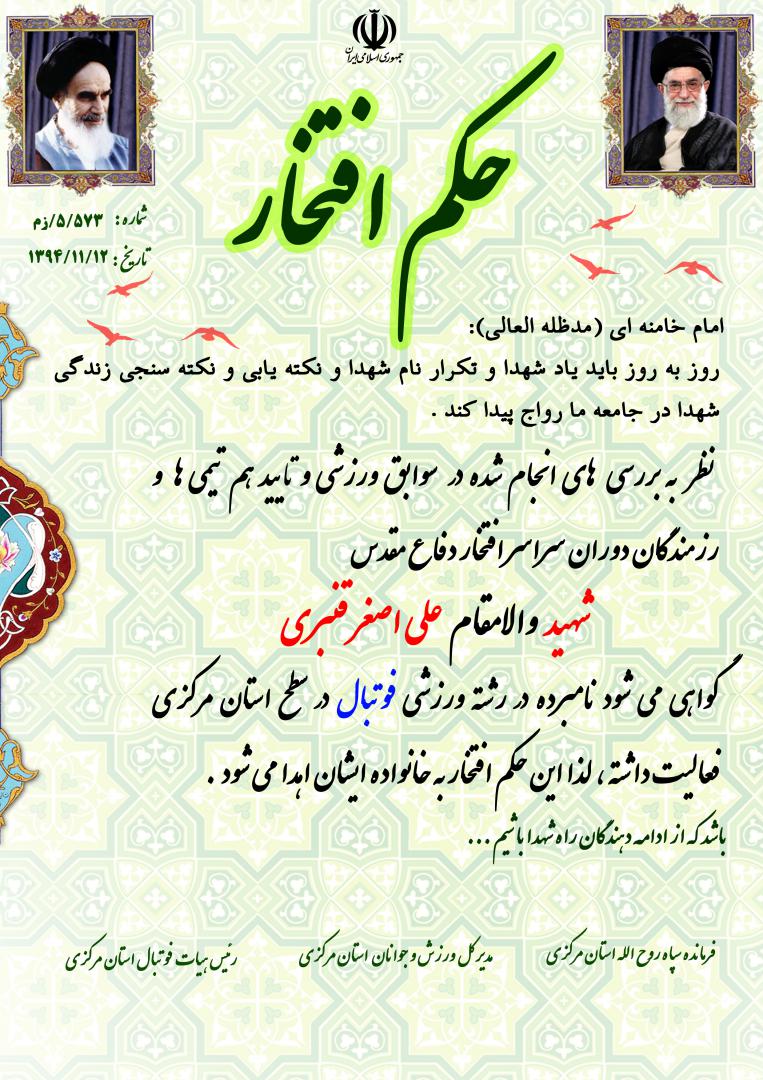 جمهوری اسلامی ایران
حکم افتخار
شماره: ۵/۵۷۳/زم
تاریخ: ۱۳۹۴/۱۱/۱۲
امام خامنه ای (مدظله العالی):
روز به روز باید یاد شهدا و تکرار نام شهدا و نکته یابی و نکته سنجی زندگی
شهدا در جامعه ما رواج پیدا کند .
نظر به بررسی های انجام شده در سوابق ورزشی و تایید هم تیمی ها و
رزمندگان دوران سراسر افتخار دفاع مقدس
شهید والامقام علی اصغر قنبری
گواهی می شود نامبرده در رشته ورزشی فوتبال در سطح استان مرکزی
فعالیت داشته ، لذا این حکم افتخار به خانواده ایشان اهدا می شود .
باشد که از ادامه دهندگان راه شهدا باشیم ...
فرمانده سپاه روح الله استان مرکزی
مدیر کل ورزش و جوانان استان مرکزی
رئیس هیات فوتبال استان مرکزی